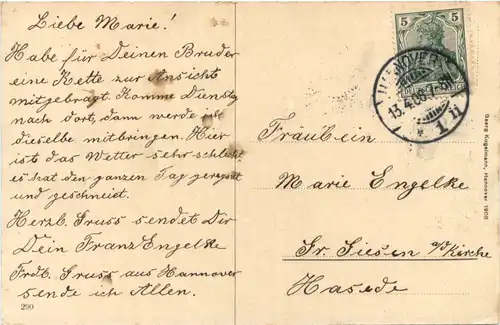 Liebe Marie!
Habe für Deinen Bruder
eine Kette zur Ansicht
mitgebragt. Komme Dienstag
nach dort, dann werde ich
dieselbe mitbringen. Hier
ist das Wetter sehr schlecht
es hat den ganzen Tag geregnet
und geschneit.
Herzl. Gruss sendet Dir
Dein Franz Engelke
Frdl. Gruss aus Hannover
sende ich Allen.
290
5 5
HANNOVER
13.4.08.7-8N
* 1.
Fräulein
Marie Engelke
Gr. Giesen a/d Kirche
Hasede
Georg Kugelmann, Hannover 1908